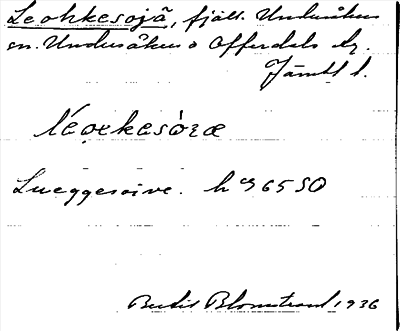 Leohkesojä, fjäll. Undersåkers
sn. Undersåkers o Offerdals
Jämtl l.
léoekesòræ
Lueggesoive. h 965 SO
Bertil Blomstrand 1936